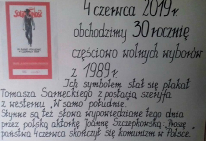 4 czerwca 2019r.
obchodzimy 30 rocznicę
częściowo wolnych wyborów
z 1989r.
Ich symbolem stał się plakat
Tomasza Sarneckiego z postacią szeryfa
z westernu „W samo południe".
Słynne są też słowa wypowiedziane tego dnia
przez polską aktorkę Joannę Szczepkowską „Proszę
państwa 4 czerwca skończył się komunizm w Polsce".